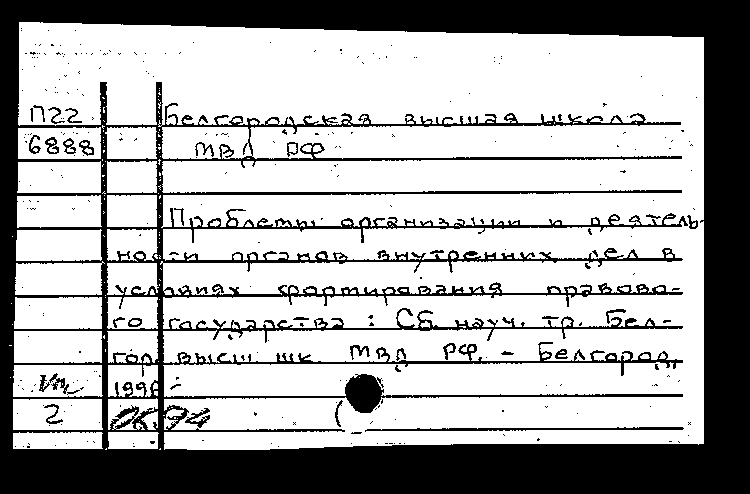 П22 Белгородская высшая школа
6888 МВД РФ
Проблемы организации и деятель-
ности органов внутренних дел в
условиях формирования правово-
го государства : Сб. науч. тр. Бел-
гор. высш шк МВД РФ. - Белгород,
2